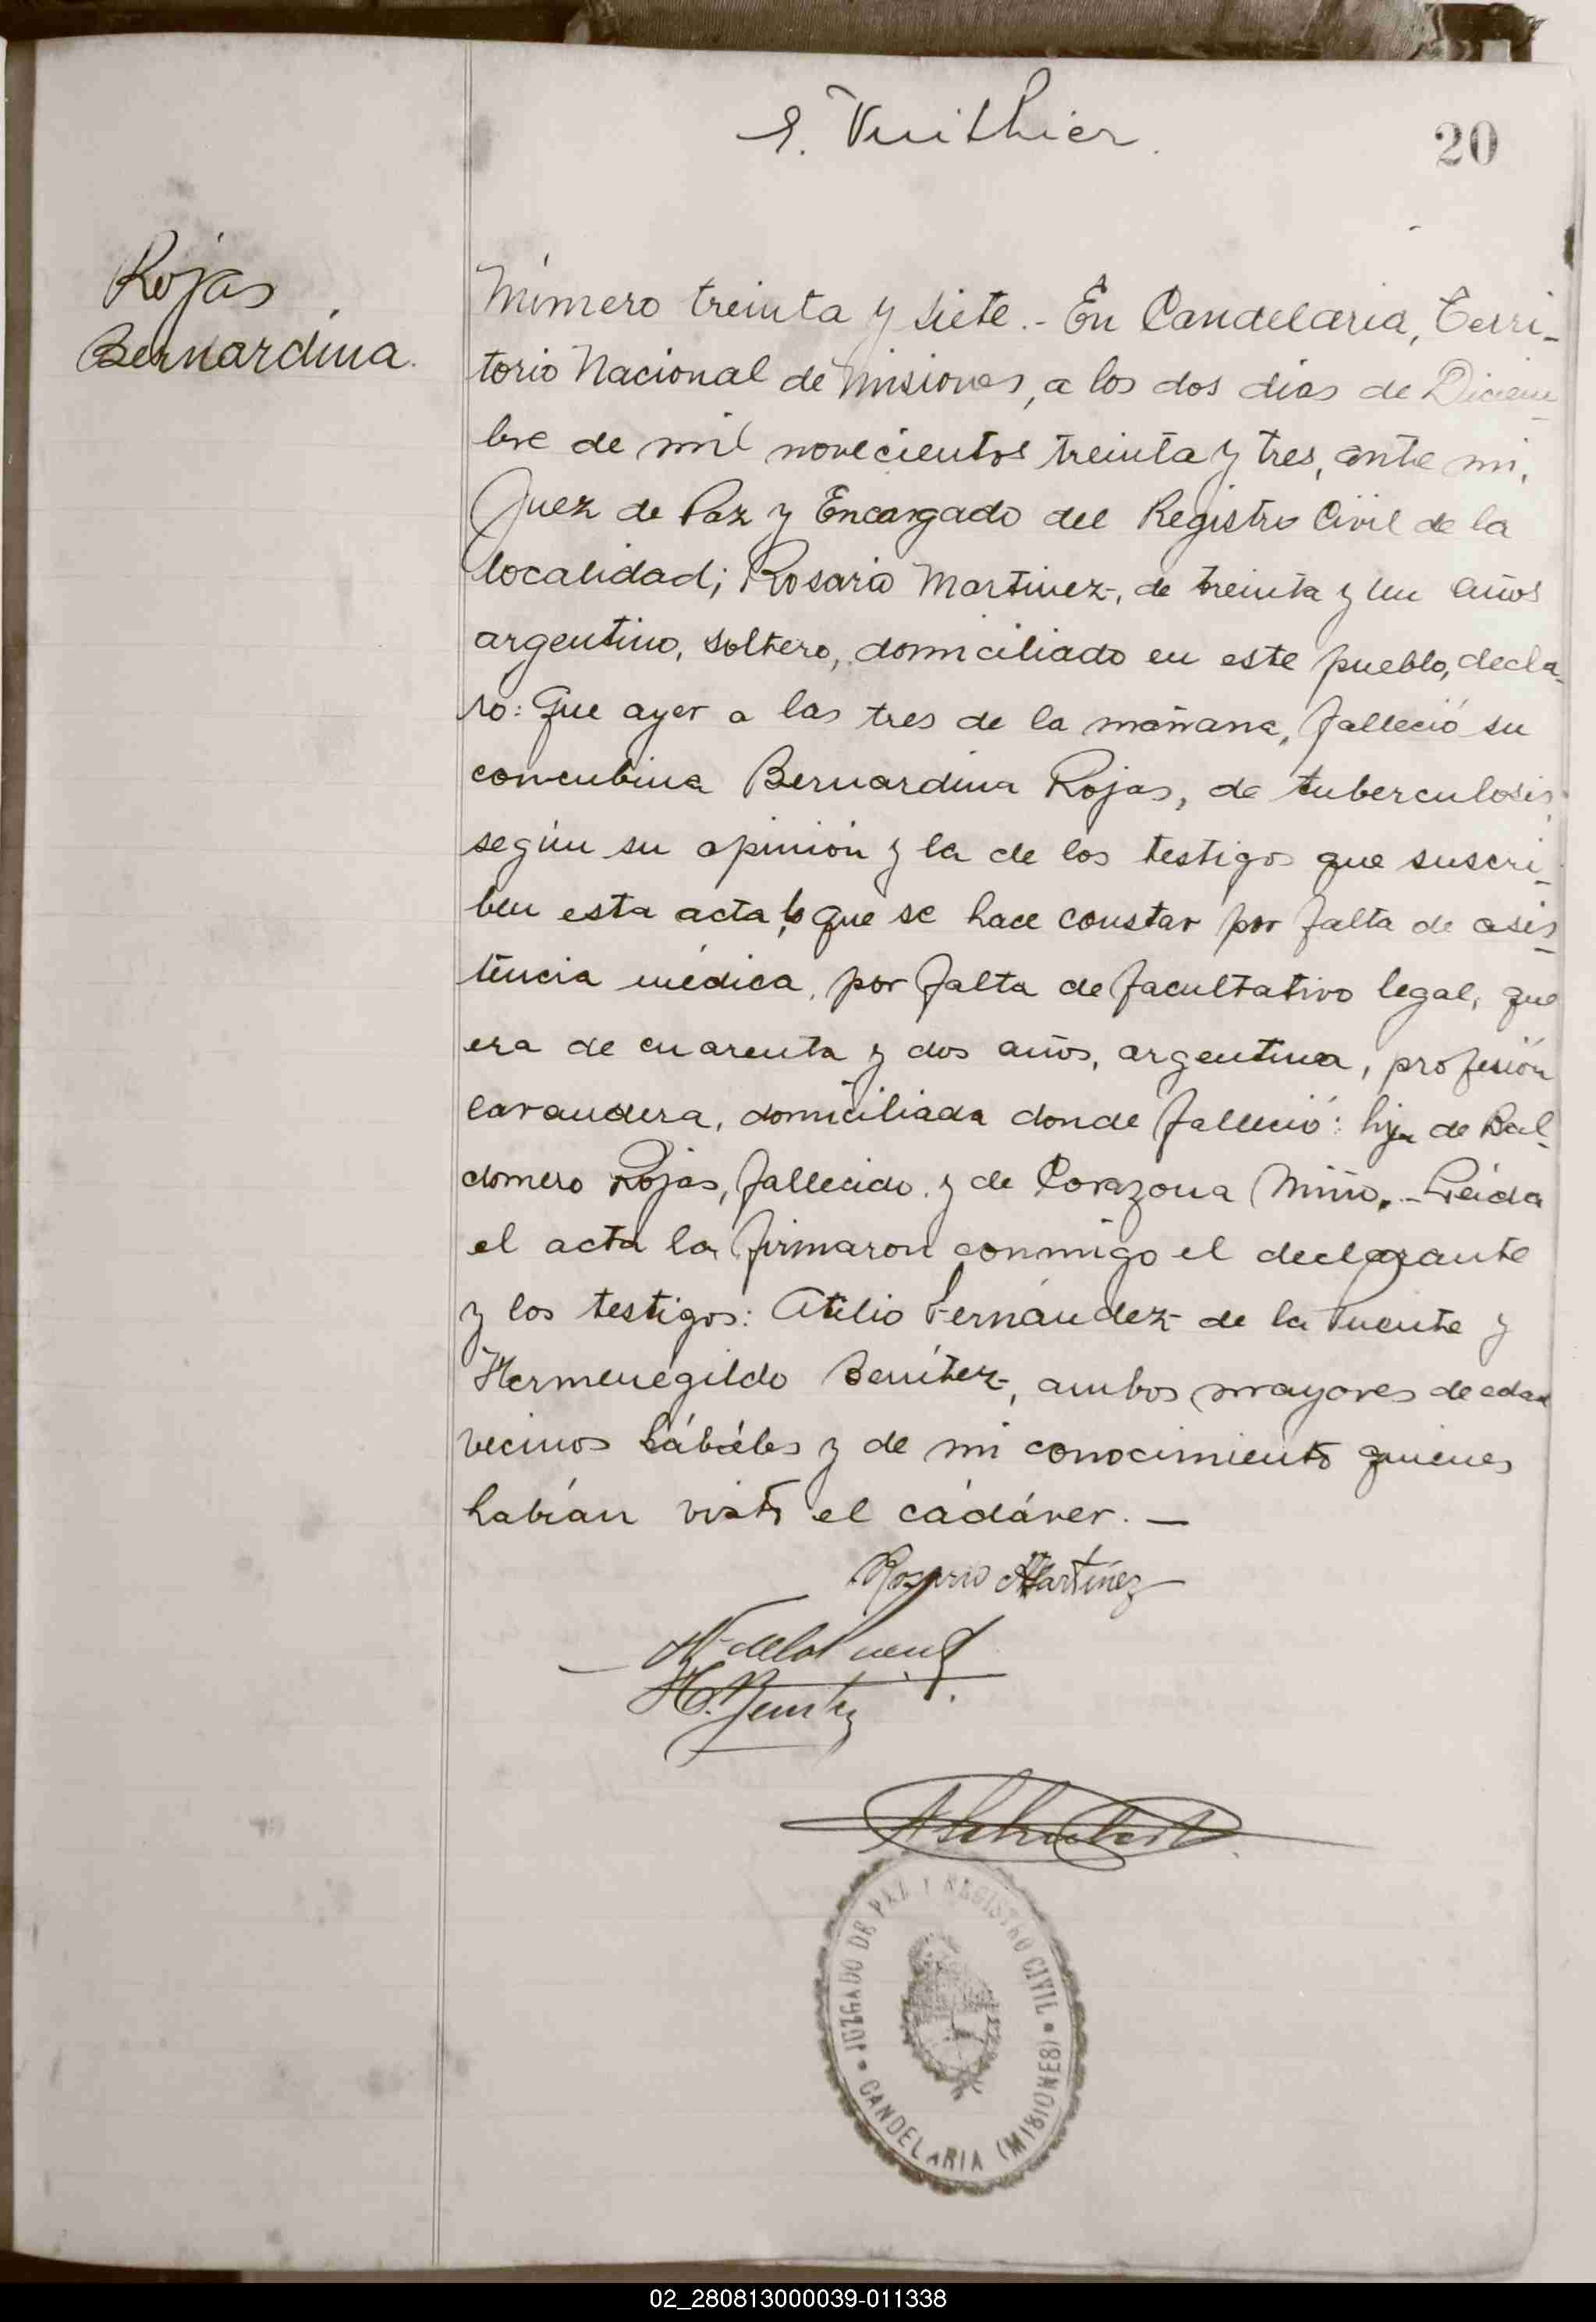 E. Vuithier.
20
Rojas
Bernardina.
Número treinta y siete.- En Candelaria, Terri-
torio Nacional de Misiones, a los dos dias de Diciem-
bre de mil novecientos treinta y tres, ante mi,
Juez de Paz y Encargado del Registro Civil de la
localidad; Rosario Martinez, de treinta y un años
argentino, soltero, domiciliado en este pueblo, decla-
ro: Que ayer a las tres de la mañana, falleció su
concubina Bernardina Rojas, de tuberculosis,
según su opinión y la de los testigos que suscri-
ben esta acta, lo que se hace constar por falta de asis-
tencia médica, por falta de facultativo legal, que
era de cuarenta y dos años, argentina, profesión
lavandera, domiciliada donde falleció: hija de Bal-
domero Rojas, fallecido y de Corazona Miño.- Leida
el acta la firmaron conmigo el declarante
y los testigos: Atilio Fernández de la Puente y
Hermenegildo Benítez, ambos mayores de edad
vecinos hábiles y de mi conocimiento quienes
habían visto el cádáver. —
Rosario Martínez
H. Benítez
JUZGADO DE PAZ Y REGISTRO CIVIL
CANDELARIA (MISIONES)
02_280813000039-011338